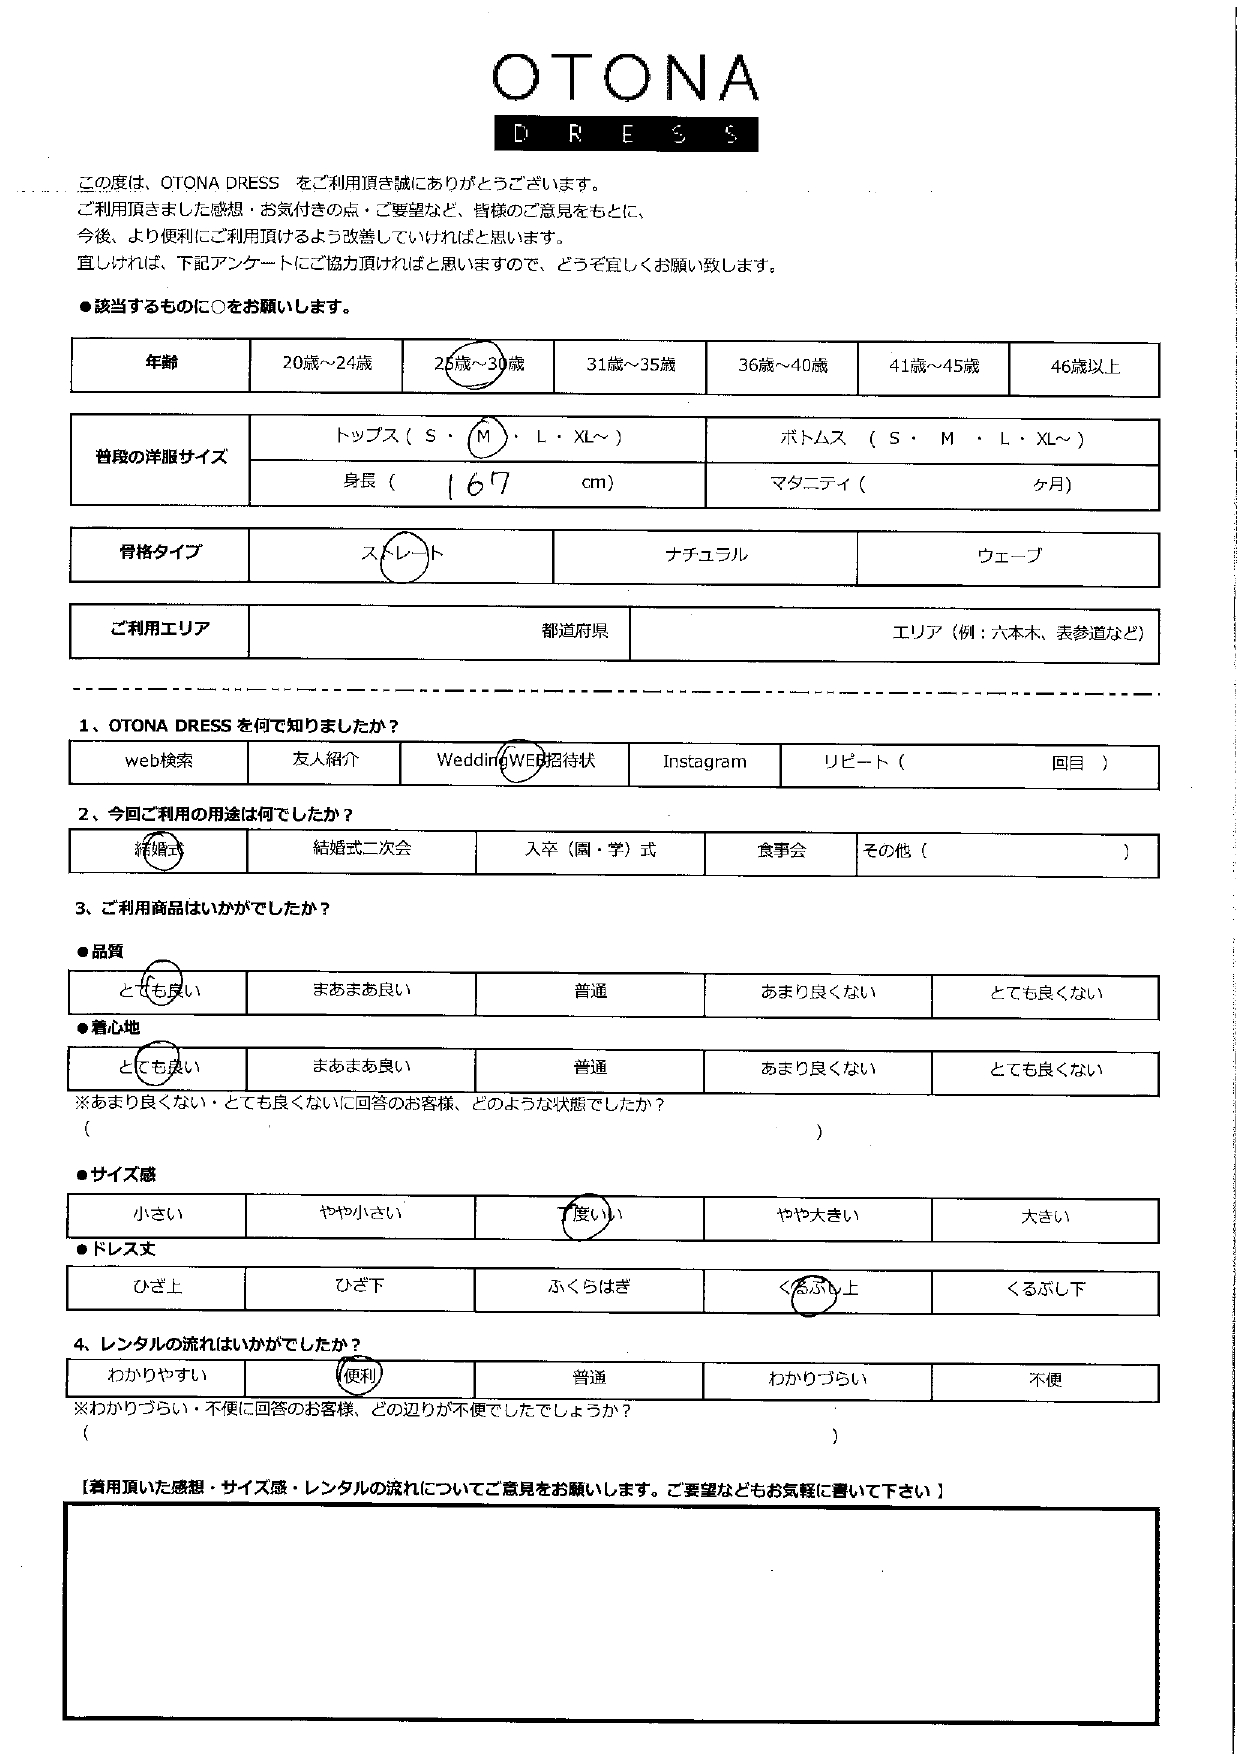 OTONA
DRESS
この度は、OTONA DRESS　をご利用頂き誠にありがとうございます。
ご利用頂きました感想・お気付きの点・ご要望など、皆様のご意見をもとに、
今後、より便利にご利用頂けるよう改善していければと思います。
宜しければ、下記アンケートにご協力頂ければと思いますので、どうぞ宜しくお願い致します。
●該当するものに〇をお願いします。
年齢 20歳～24歳 25歳～30歳 31歳～35歳 36歳～40歳 41歳～45歳 46歳以上
普段の洋服サイズ トップス（ S ・ M ・ L ・ XL～ ） ボトムス （ S ・ M ・ L ・ XL～ ）
身長（ 167 cm） マタニティ（ ヶ月）
骨格タイプ ストレート ナチュラル ウェーブ
ご利用エリア 都道府県 エリア（例：六本木、表参道など）
1、OTONA DRESS を何で知りましたか？
web検索 友人紹介 WeddingWEB招待状 Instagram リピート（ 回目 ）
2、今回ご利用の用途は何でしたか？
結婚式 結婚式二次会 入卒（園・学）式 食事会 その他（ ）
3、ご利用商品はいかがでしたか？
●品質
とても良い まあまあ良い 普通 あまり良くない とても良くない
●着心地
とても良い まあまあ良い 普通 あまり良くない とても良くない
※あまり良くない・とても良くないに回答のお客様、どのような状態でしたか？
（ ）
●サイズ感
小さい やや小さい 丁度いい やや大きい 大きい
●ドレス丈
ひざ上 ひざ下 ふくらはぎ くるぶし上 くるぶし下
4、レンタルの流れはいかがでしたか？
わかりやすい 便利 普通 わかりづらい 不便
※わかりづらい・不便に回答のお客様、どの辺りが不便でしたでしょうか？
（ ）
【着用頂いた感想・サイズ感・レンタルの流れについてご意見をお願いします。ご要望などもお気軽に書いて下さい】